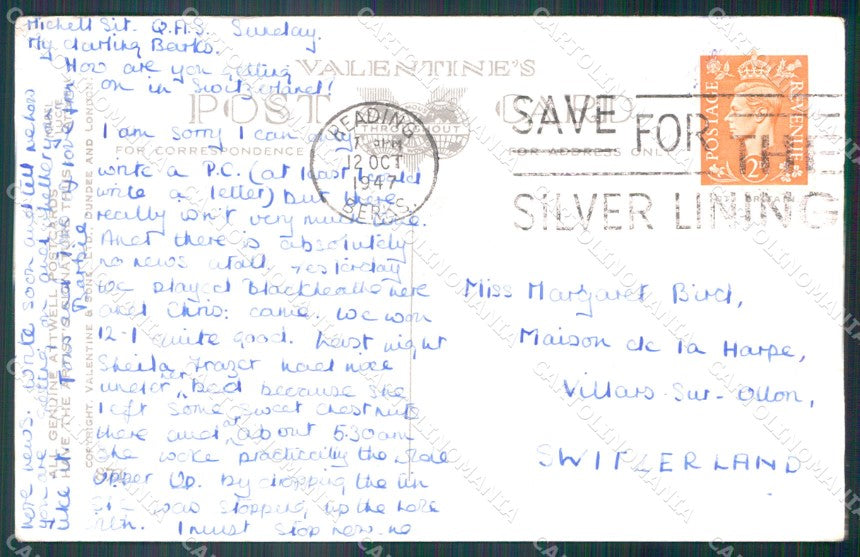 Michell Sit. Q.A.S. Sunday.
My darling Barks.
How are you getting
on in Switzerland!
I am sorry I can only
write a P.C. (at least I could
write a letter) but there
really isn't very much time.
And there is absolutely
no news atall, yesterday
we played Blackheath here
and Chris: came. We won
12-1 quite good. Last night
Sheila Frazer had mice
under her bed because she
left some sweet chestnuts
there and at about 5.30am
she woke practically the whole
Upper Up. by dropping the tin
was stopping up the hole
with. I must stop now no
more news. Write soon and tell me how
you are
like it Tons and tons of love from
Barbie
VALENTINE'S
POST CARD
FOR CORRESPONDENCE
THROUGHOUT
FOR ADDRESS ONLY
ALL GENUINE ATTWELL POSTCARDS
HAVE THE ARTIST'S SIGNATURE THUS
COPYRIGHT, VALENTINE & SONS, LTD., DUNDEE AND LONDON.
READING
PM
12 OCT
1947
BERKS.
SAVE FOR THE
SILVER LINING
POSTAGE
REVENUE
2D
Miss Margaret Bird,
Maison de la Harpe,
Villars-Sur-Ollon,
SWITZERLAND
CARTOLINOMANIA